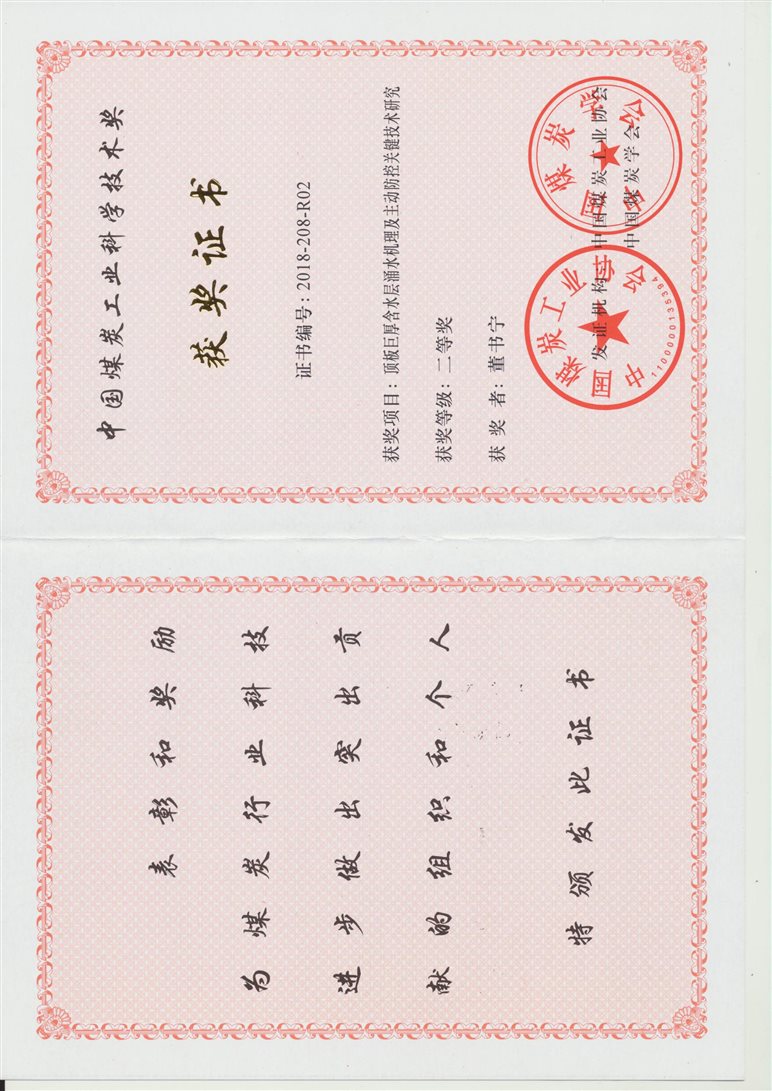 表彰和奖励
为煤炭行业科技
进步做出突出贡
献的组织和个人
特颁发此证书
中国煤炭工业科学技术奖
获奖证书
证书编号：2018-208-R02
获奖项目：顶板巨厚含水层涌水机理及主动防控关键技术研究
获奖等级：二等奖
获 奖 者：董书宁
发证机构：中国煤炭工业协会
中国煤炭学会
中国煤炭工业协会
1100000135394
中国煤炭学会